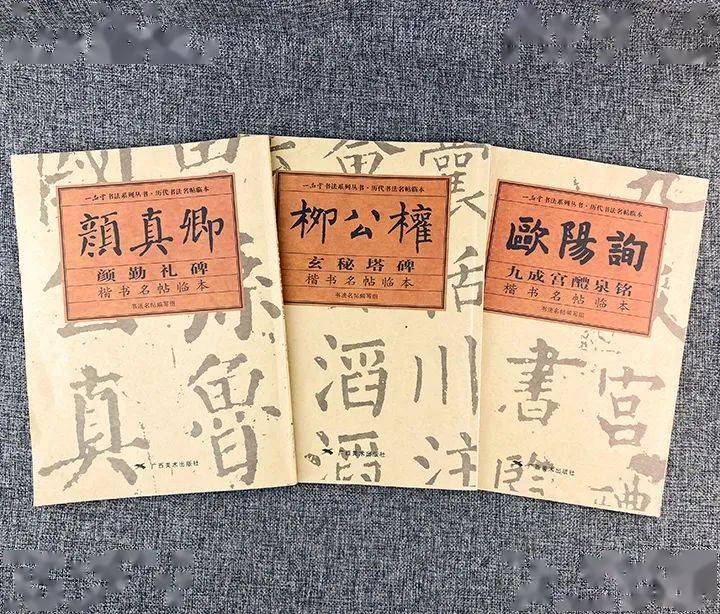 一品堂书法系列丛书·历代书法名帖临本
顔真卿
颜勤礼碑
楷书名帖临本
书法名帖编写组
真
魯
广西美术出版社
一品堂书法系列丛书·历代书法名帖临本
柳公權
玄秘塔碑
楷书名帖临本
书法名帖编写组
活
滔川
滔注
广西美术出版社
一品堂书法系列丛书·历代书法名帖临本
歐陽詢
九成宫醴泉铭
楷书名帖临本
书法名帖编写组
書宮
醴
广西美术出版社